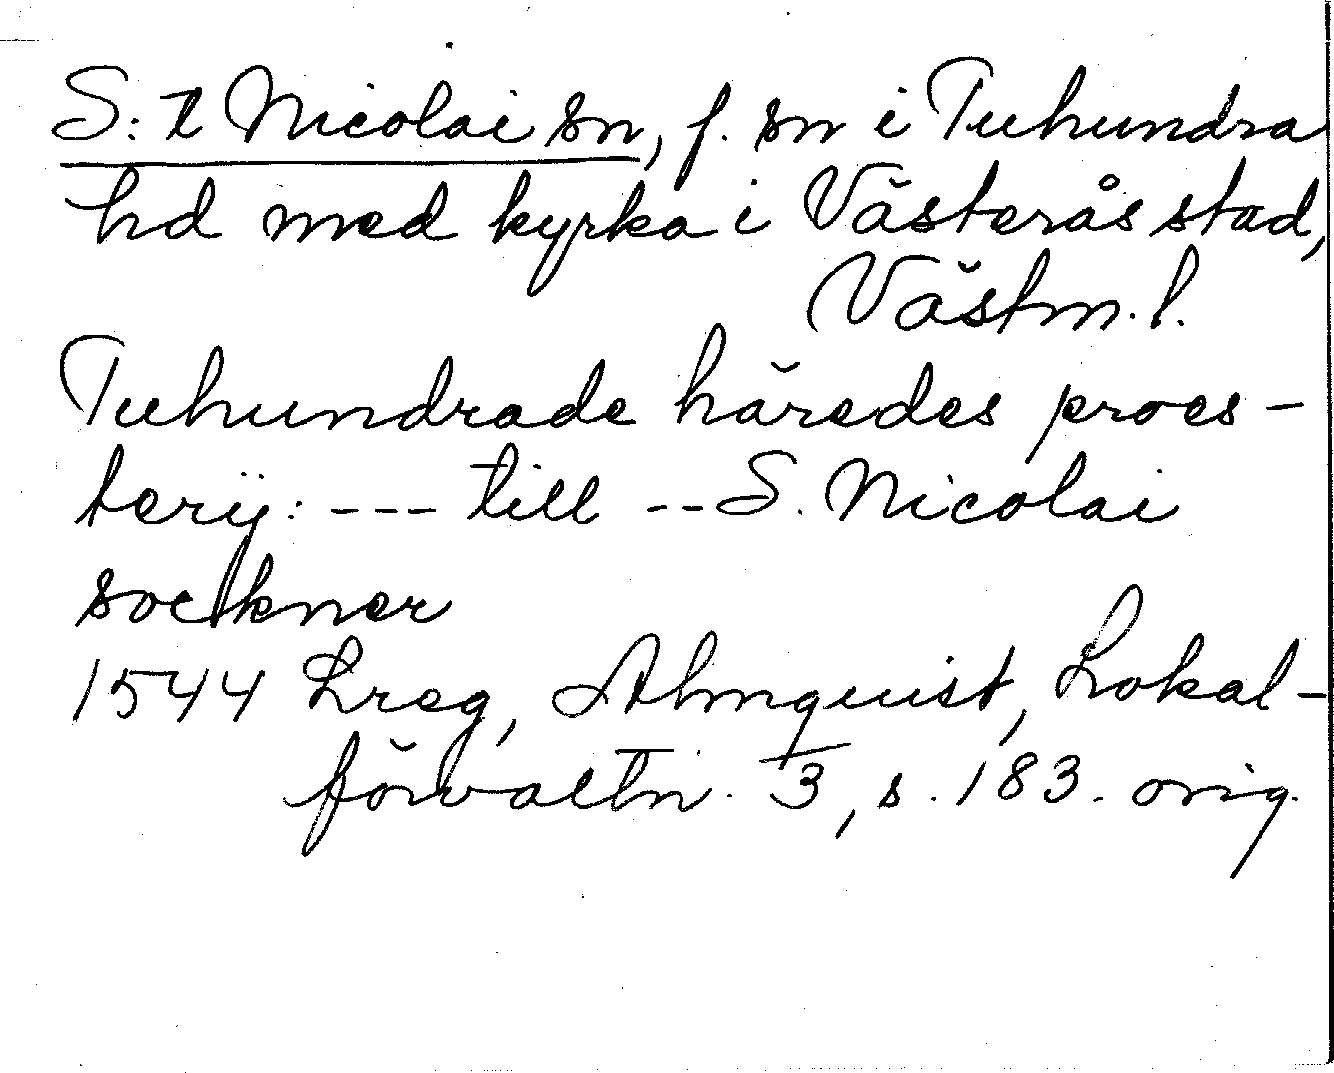 S:t Nicolai sn, f. sn i Tuhundra
hd med kyrka i Västerås stad,
Västm. l.
Tuhundrade häredes proes-
terij: --- till -- S. Nicolai
sockner
1544 Lreg, Almquist, Lokal-
förvaltn. 3, s. 183. orig.